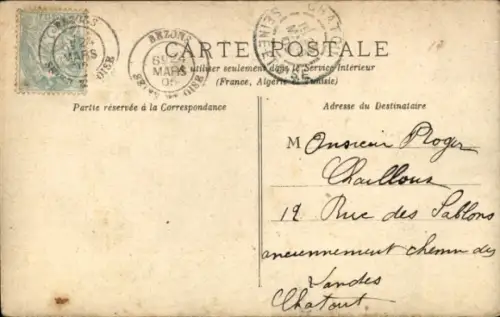 BEZONS
MARS
BEZONS
MARS
CARTE POSTALE
à utiliser seulement dans le Service Intérieur
(France, Algérie et Tunisie)
Partie réservée à la Correspondance
Adresse du Destinataire
Monsieur Roger
Chaillous
12 Rue des Sablons
anciennement chemin des
Landes
Chatout